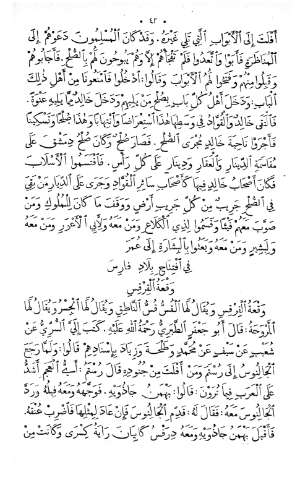 ٤٢
أفلت إلى الأبواب التي تلي غيره وقد كان المسلمون دعوهم إلى
المناظرة فأبوا وأبعدوا فلم يفجأهم إلا وهم يبوحون لهم بالصلح فأجابوهم
وقبلوا منهم وفتحوا لهم الأبواب وقالوا ادخلوا وامنعونا من أهل ذلك
الباب ودخل أهل كل باب بصلح من يليهم ودخل خالد مما يليه عنوة
فالتقى خالد والقواد في وسطها هذا استعراضا وانتهابا وهذا صلحا وتسكينا
فأجروا ناحية خالد مجرى الصلح فصار صلحا وكان صلح دمشق على
مقاسمة الدينار والعقار ودينار على كل رأس فاقتسموا الأسلاب
فكان أصحاب خالد فيها كأصحاب سائر القواد وجرى على الديار من بقي
في الصلح جريب من كل جريب أرض ووقف ما كان للملوك ومن
صوب معهم فيئا وقسموا لذي الكلاع ومن معه ولأبي الأعور ومن معه
ولبشير ومن معه وبعثوا بالبشارة إلى عمر
في افتتاح بلاد فارس
وقعة القرقس
وقعة القرقس ويقال لها القس قس الناطف ويقال لها الجسر ويقال لها
المروحة قال أبو جعفر الطبري رحمة الله عليه كتب إلي السري عن
شعيب عن سيف عن محمد وطلحة وزياد بإسنادهم قالوا ولما رجع
الجالنوس إلى رستم ومن أفلت من جنوده قال رستم أي العجم أشد
على العرب فيما ترون قالوا بهمن جاذويه فوجهه ومعه فيلة ورد
الجالنوس معه فقال له قدم الجالنوس فإن عاد لمثلها فاضرب عنقه
فأقبل بهمن جاذويه ومعه درفس كابيان راية كسرى وكانت من